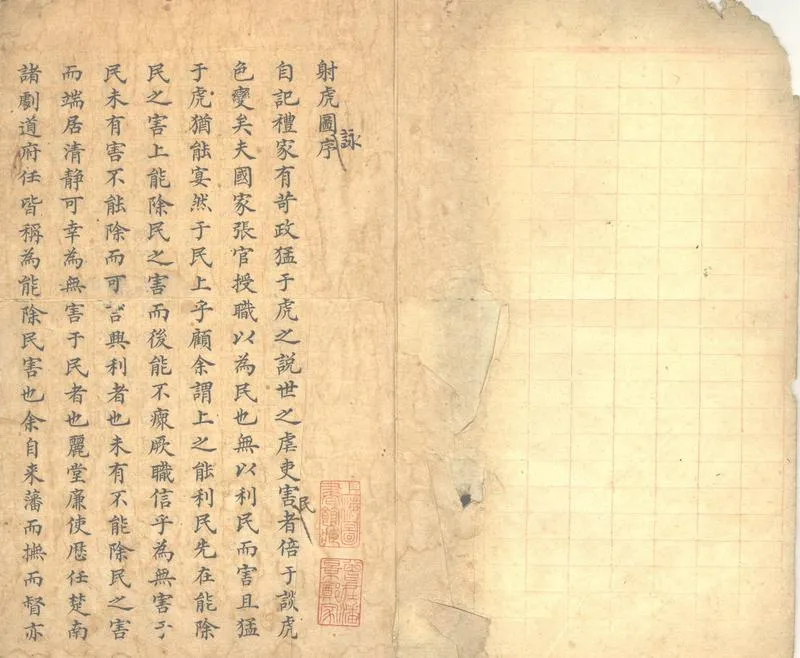 射虎圖詠序
自記禮家有苛政猛于虎之説世之虐吏害民者倍于談虎
色變矣夫國家張官授職以為民也無以利民而害且猛
于虎猶能宴然于民上乎顧余謂上之能利民先在能除
民之害上能除民之害而後能不瘝厥職信乎為無害于
民未有害不能除而可言興利者也未有不能除民之害
而端居清静可幸為無害于民者也麗堂廉使歷任楚南
諸劇道府任皆稱為能除民害也余自来藩而撫而督亦
上海圖書館藏